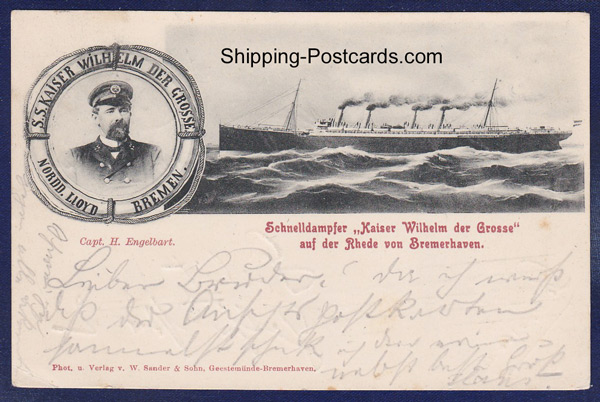 Shipping-Postcards.com
S.S. KAISER WILHELM DER GROSSE
NORDD. LLOYD BREMEN.
Capt. H. Engelbart.
Schnelldampfer „Kaiser Wilhelm der Grosse“
auf der Rhede von Bremerhaven.
Lieber Bruder! da ich weiß
daß du Ansichtspostkarten
ich dir
nebst Gruß
Phot. u. Verlag v. W. Sander & Sohn, Geestemünde-Bremerhaven.